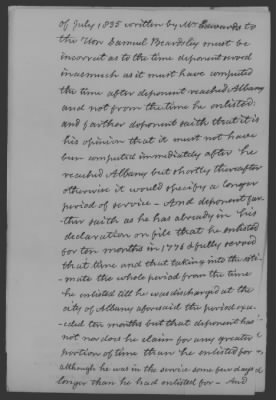 of July 1835 written by Mr Edwards to
the Hon Samuel Beardsley must be
incorrect as to the time deponent served
inasmuch as it must have computed
the time after deponent reached Albany
and not from the time he enlisted.
and farther deponent saith that it is
his opinion that it must not have
been computed immediately after he
reached Albany but shortly thereafter
otherwise it would specify a longer
period of service - And deponent far-
ther saith as he has already in his
declaration on file that he enlisted
for ten months in 1776 & fully served
that time and that taking into the esti-
-mate the whole period from the time
he enlisted till he was discharged at the
city of Albany aforesaid the period exce-
-eded ten months but that deponent has
not nor does he claim for any greater
portion of time than he enlisted for
although he was in the service some few days
longer than he had enlisted for - And